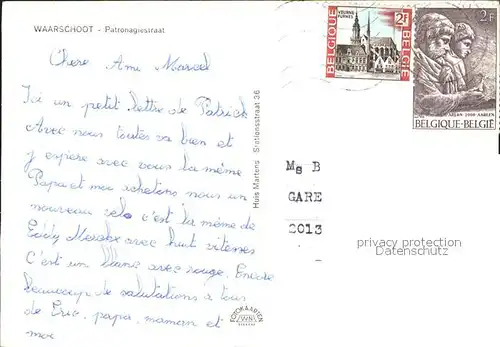 WAARSCHOOT - Patronagiestraat
Chere Ami Marcel
Ici un petit lettre de Patrick
Avec nous toutes va bien et
j espere avec vous la même
Papa et moi achetons nous un
nouveau velo c'est la même de
Eddy Merckx avec huit vitesses
C'est un blanc avec rouge. Encore
beaucoup de salutations à tous
de Eric, papa, maman et
moi
Huis Martens Stationsstraat 36
FOTOKAARTEN
VEURNE
FURNES
2F
BELGIQUE
BELGIE
2F
ARLON 2000 AARLEN
BELGIQUE-BELGIË
Ms B
GARE
2013
privacy protection
Datenschutz